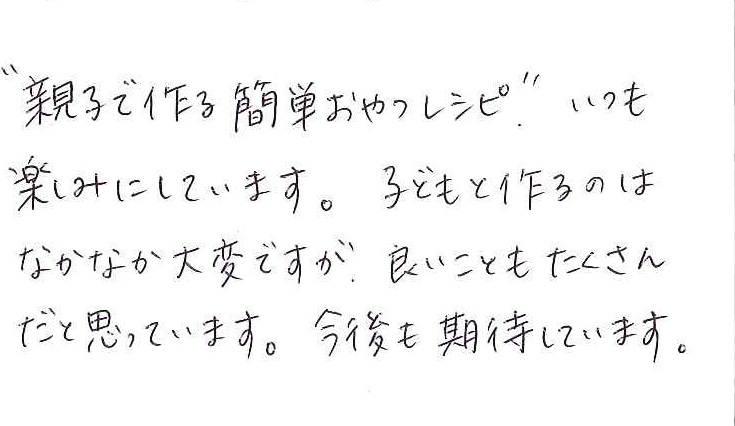 "親子で作る簡単おやつレシピ"、いつも
楽しみにしています。子どもと作るのは
なかなか大変ですが、良いこともたくさん
だと思っています。今後も期待しています。